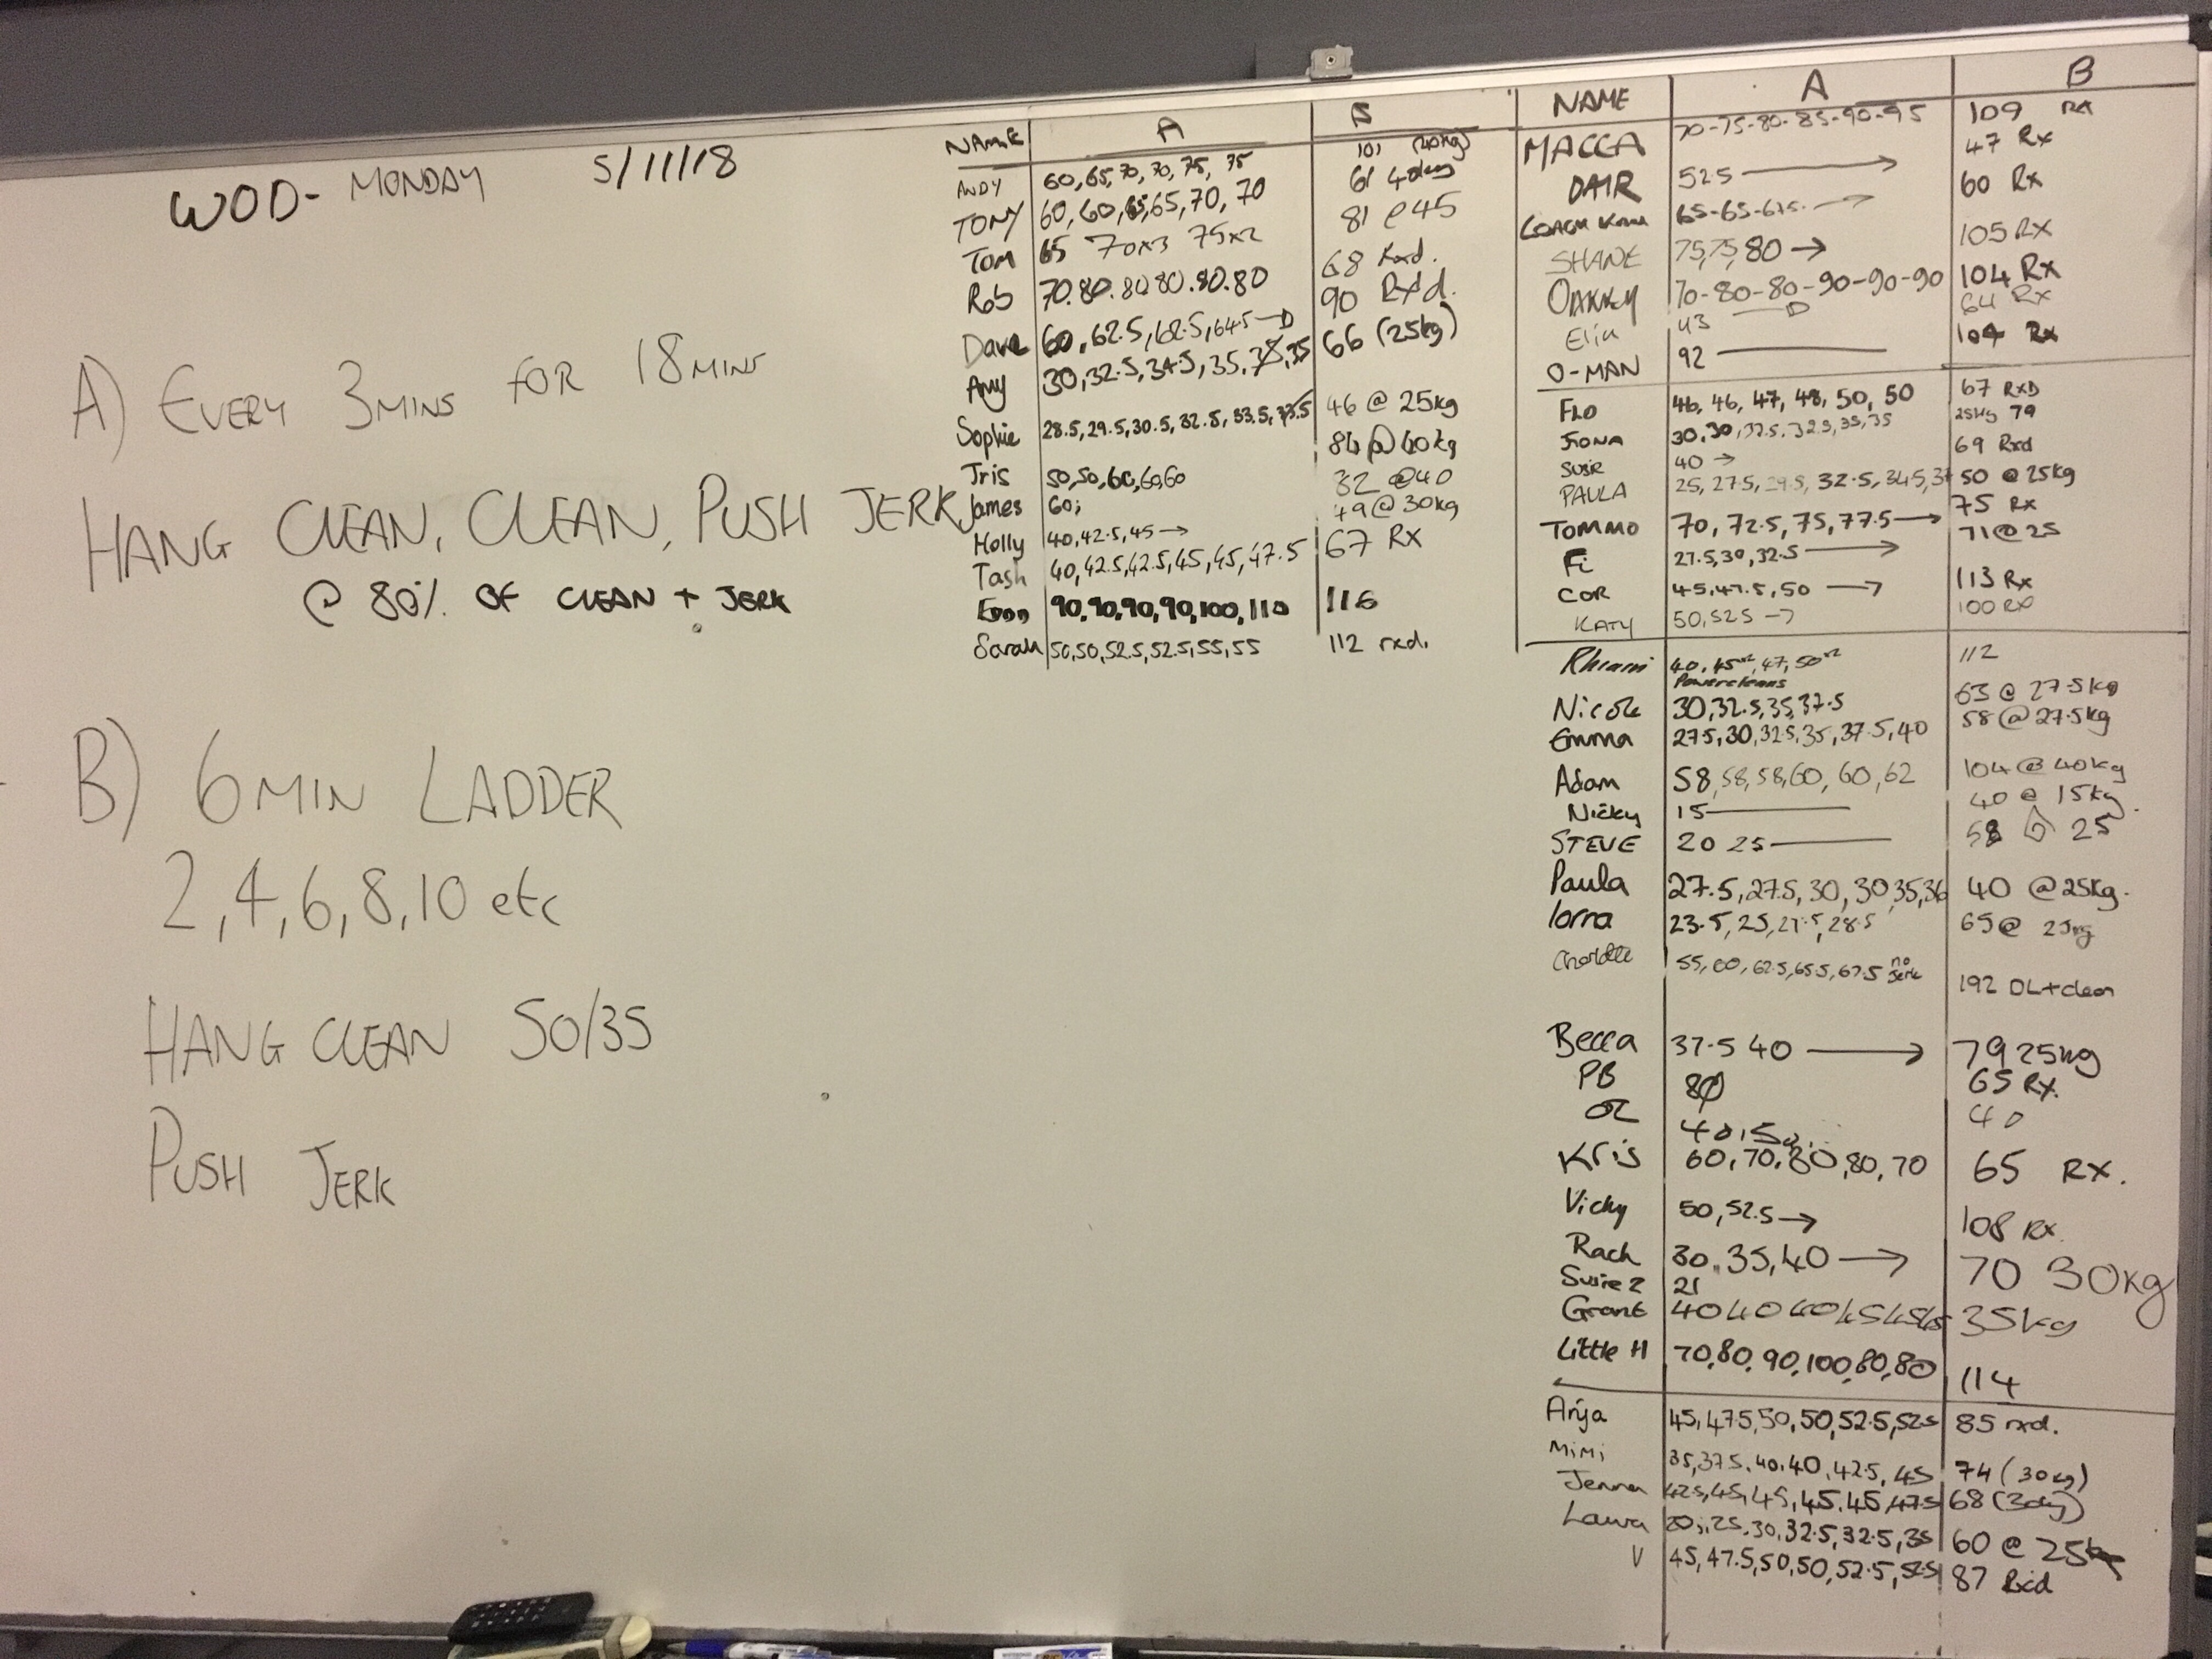 WOD - MONDAY 5/11/18
A) EVERY 3MINS FOR 18MINS
HANG CLEAN, CLEAN, PUSH JERK
@ 80% OF CLEAN + JERK
B) 6 MIN LADDER
2, 4, 6, 8, 10 etc
HANG CLEAN 50/35
PUSH JERK
NAME A B
ANDY 60, 65, 70, 70, 75, 75 101 (40kg)
TONY 60, 60, 65, 65, 70, 70 61 40kg
TOM 65 70x3 75x2 81 @ 45
Rob 70.80.80 80.80.80 68 Rxd.
Dave 60, 62.5, 62.5, 64.5 → 90 Rx'd.
Amy 30, 32.5, 34.5, 35, 35, 35 66 (25kg)
Sophie 28.5, 29.5, 30.5, 32.5, 33.5, 33.5 46 @ 25kg
Tris 50, 50, 60, 60, 60 84 @ 40kg
James 60; 32 @40
Holly 40, 42.5, 45 → 49 @ 30kg
Tash 40, 42.5, 42.5, 45, 45, 47.5 67 Rx
90, 90, 90, 90, 100, 110 116
Sarah 50, 50, 52.5, 52.5, 55, 55 112 rxd.
NAME A B
MACCA 70-75-80-85-90-95 109 RX
DAIR 52.5 → 47 Rx
COACH 65-65-67.5- → 60 Rx
SHANE 75, 75, 80 → 105 RX
OAKLEY 70-80-80-90-90-90 104 Rx
43 → 64 Rx
O-MAN 92 104 Rx
FLO 46, 46, 47, 48, 50, 50 67 RXD
FIONA 30, 30, 32.5, 32.5, 35, 35 25kg 79
SUSIE 40 → 69 Rxd
PAULA 25, 27.5, 29.5, 32.5, 34.5, 37 50 @ 25kg
TOMMO 70, 72.5, 75, 77.5 → 75 Rx
Fi 27.5, 30, 32.5 → 71 @ 25
COR 45, 47.5, 50 → 113 Rx
KATY 50, 52.5 → 100 RX
40, 45x2, 47, 50x2 112
Powercleans
Nicole 30, 32.5, 35, 37.5 63 @ 27.5kg
Emma 27.5, 30, 32.5, 35, 37.5, 40 58 @ 27.5kg
Adam 58, 58, 58, 60, 60, 62 104 @ 40kg
Nicky 15 40 @ 15kg.
STEVE 20 25 58 @ 25
Paula 27.5, 27.5, 30, 30, 35, 36 40 @ 25kg.
lorna 23.5, 25, 27.5, 28.5 65 @ 25kg
Charlotte 55, 60, 62.5, 65.5, 67.5 no jerk 192 DL+clean
Becca 37.5 40 → 79 25kg
PB 80 65 Rx.
OZ 40, 50 40
Kris 60, 70, 80, 80, 70 65 RX.
Vicky 50, 52.5 → 108 RX.
Rach 30, 35, 40 → 70 30kg
Susie 2 21
Grant 40 40 40 45 45 45 35kg
Little H 70, 80, 90, 100, 80, 80 114
Anja 45, 47.5, 50, 50, 52.5, 52.5 85 rxd.
MiMi 35, 37.5, 40, 40, 42.5, 45 74 (30kg)
Jenna 42.5, 45, 45, 45, 45, 47.5 68 (30kg)
Laura 20, 25, 30, 32.5, 32.5, 35 60 @ 25
V 45, 47.5, 50, 50, 52.5, 52.5 87 Rxd